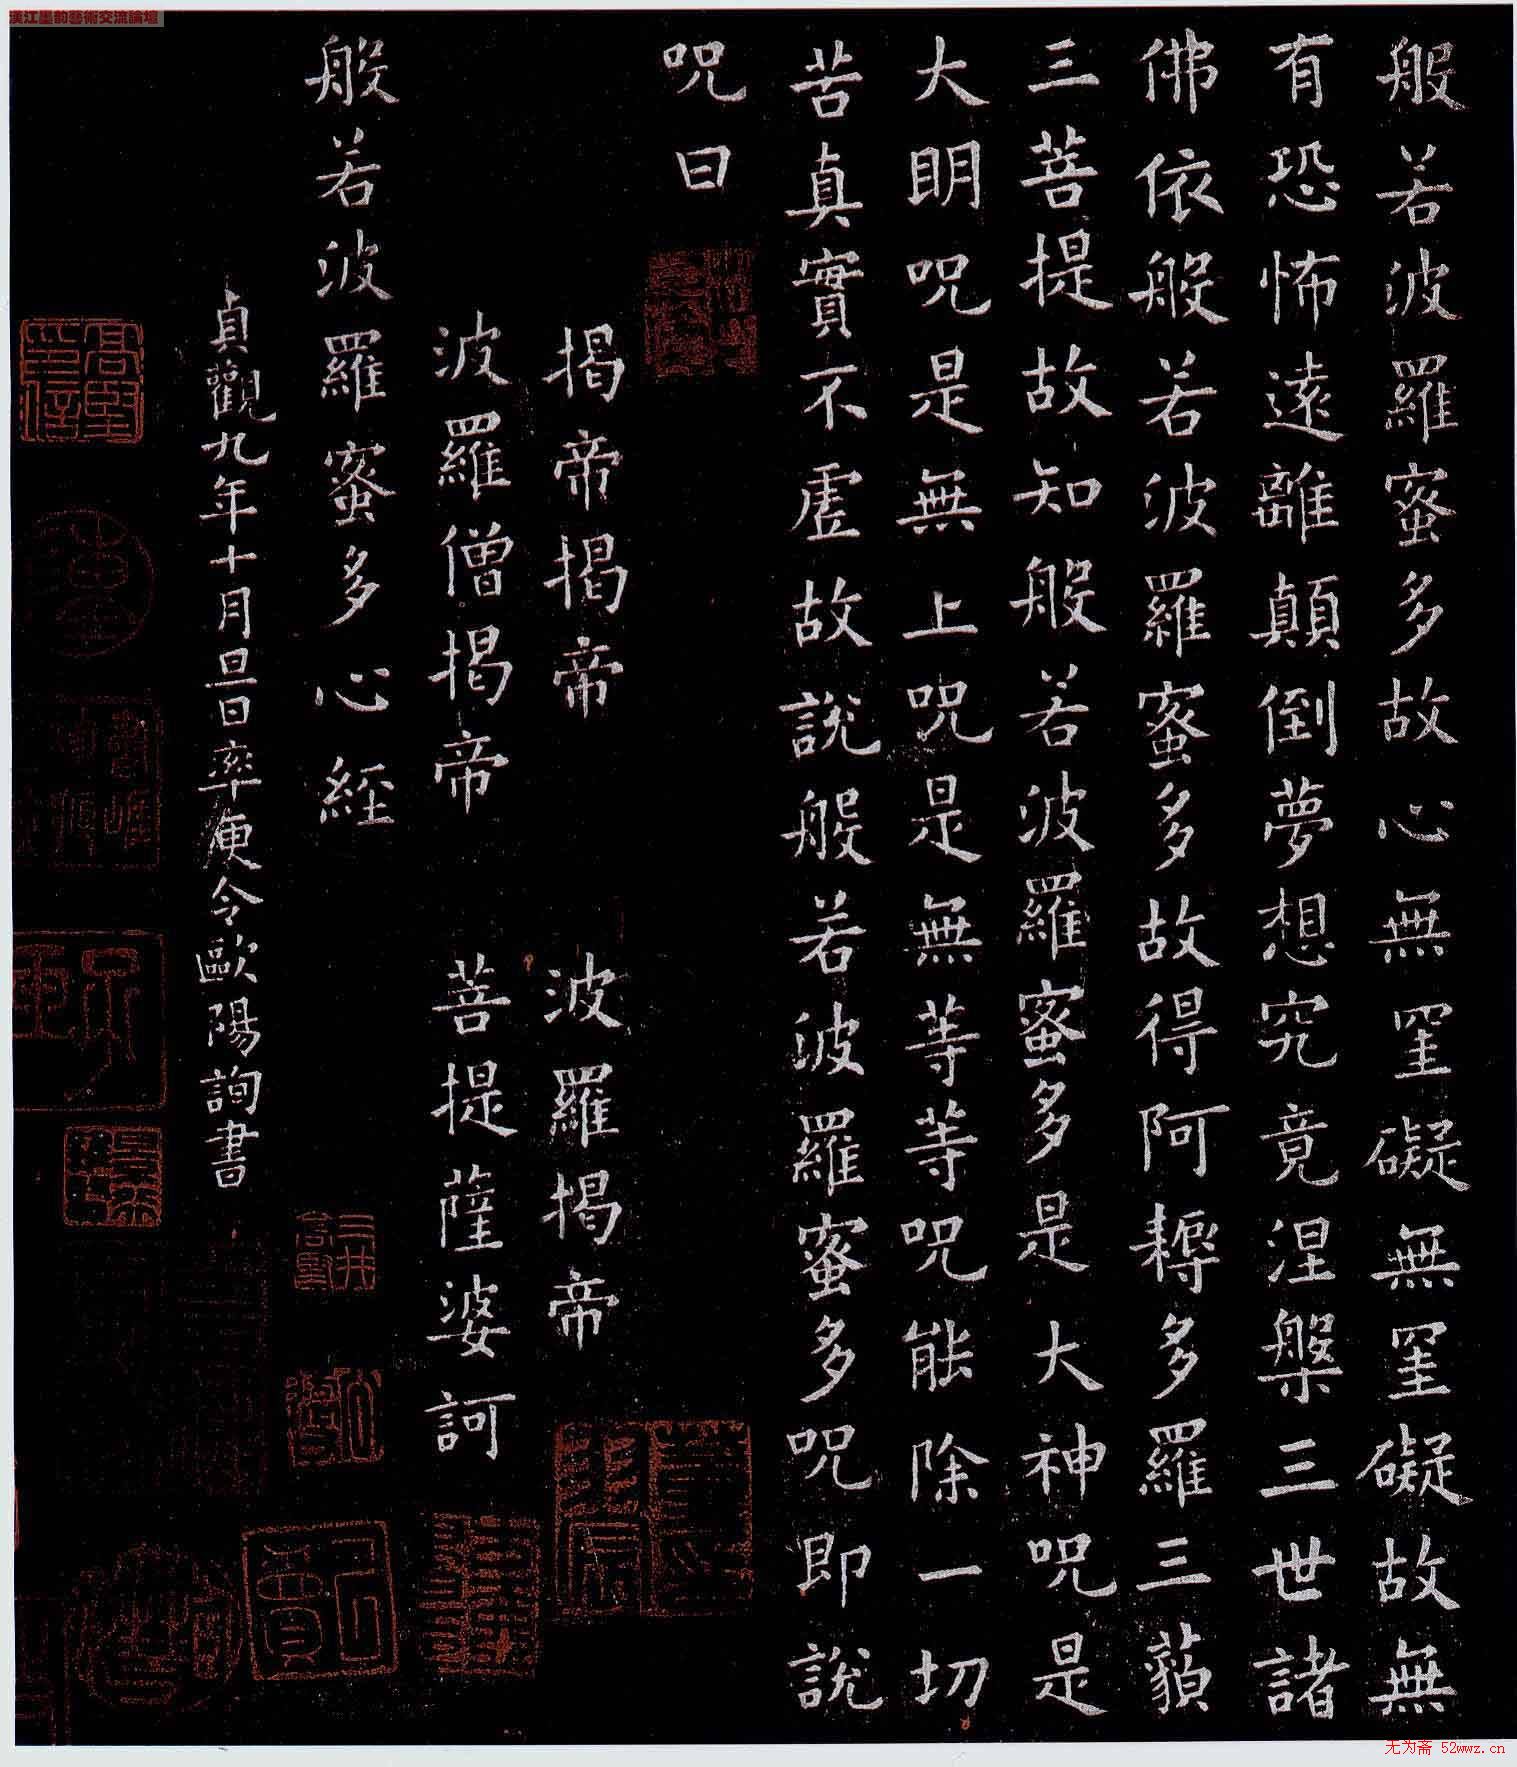 漢江墨韵藝術交流論壇
般若波羅蜜多故心無罣礙無罣礙故無
有恐怖遠離顛倒夢想究竟涅槃三世諸
佛依般若波羅蜜多故得阿耨多羅三藐
三菩提故知般若波羅蜜多是大神咒是
大明咒是無上咒是無等等咒能除一切
苦真實不虛故說般若波羅蜜多咒即說
咒曰
揭帝揭帝 波羅揭帝
波羅僧揭帝 菩提薩婆訶
般若波羅蜜多心經
貞觀九年十月旦日率更令歐陽詢書
三井
高堅
无为斋 52wwz.cn